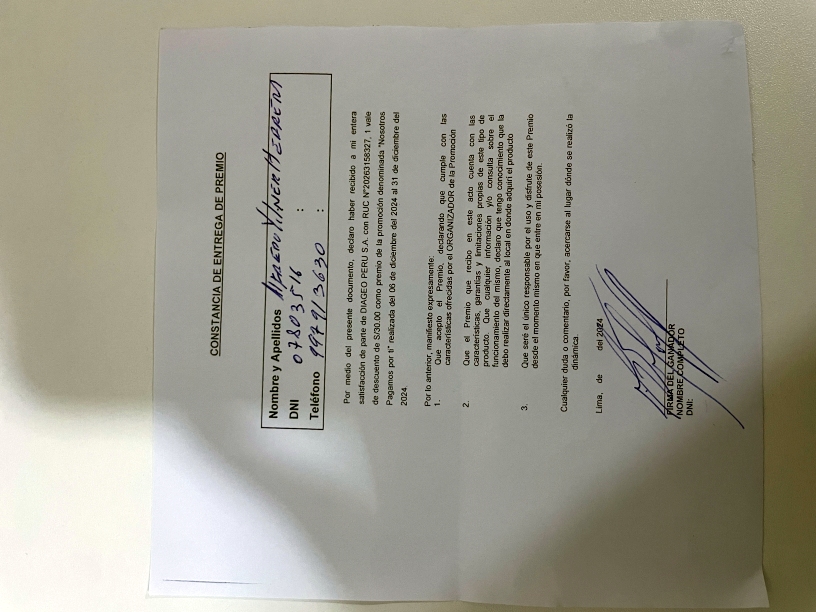 CONSTANCIA DE ENTREGA DE PREMIO
Nombre y Apellidos
DNI : 07803516
Teléfono : 999913630
Por medio del presente documento, declaro haber recibido a mi entera
satisfacción de parte de DIAGEO PERU S.A. con RUC N°20263158327, 1 vale
de descuento de S/30.00 como premio de la promoción denominada "Nosotros
Pagamos por ti" realizada del 06 de diciembre del 2024 al 31 de diciembre del
2024.
Por lo anterior, manifiesto expresamente:
1. Que acepto el Premio, declarando que cumple con las
características ofrecidas por el ORGANIZADOR de la Promoción
2. Que el Premio que recibo en este acto cuenta con las
características, garantías y limitaciones propias de este tipo de
producto. Que cualquier información y/o consulta sobre el
funcionamiento del mismo, declaro que tengo conocimiento que la
debo realizar directamente al local en donde adquirí el producto
3. Que seré el único responsable por el uso y disfrute de este Premio
desde el momento mismo en que entre en mi posesión.
Cualquier duda o comentario, por favor, acercarse al lugar dónde se realizó la
dinámica.
Lima, de del 2024
FIRMA DEL GANADOR
NOMBRE COMPLETO
DNI: